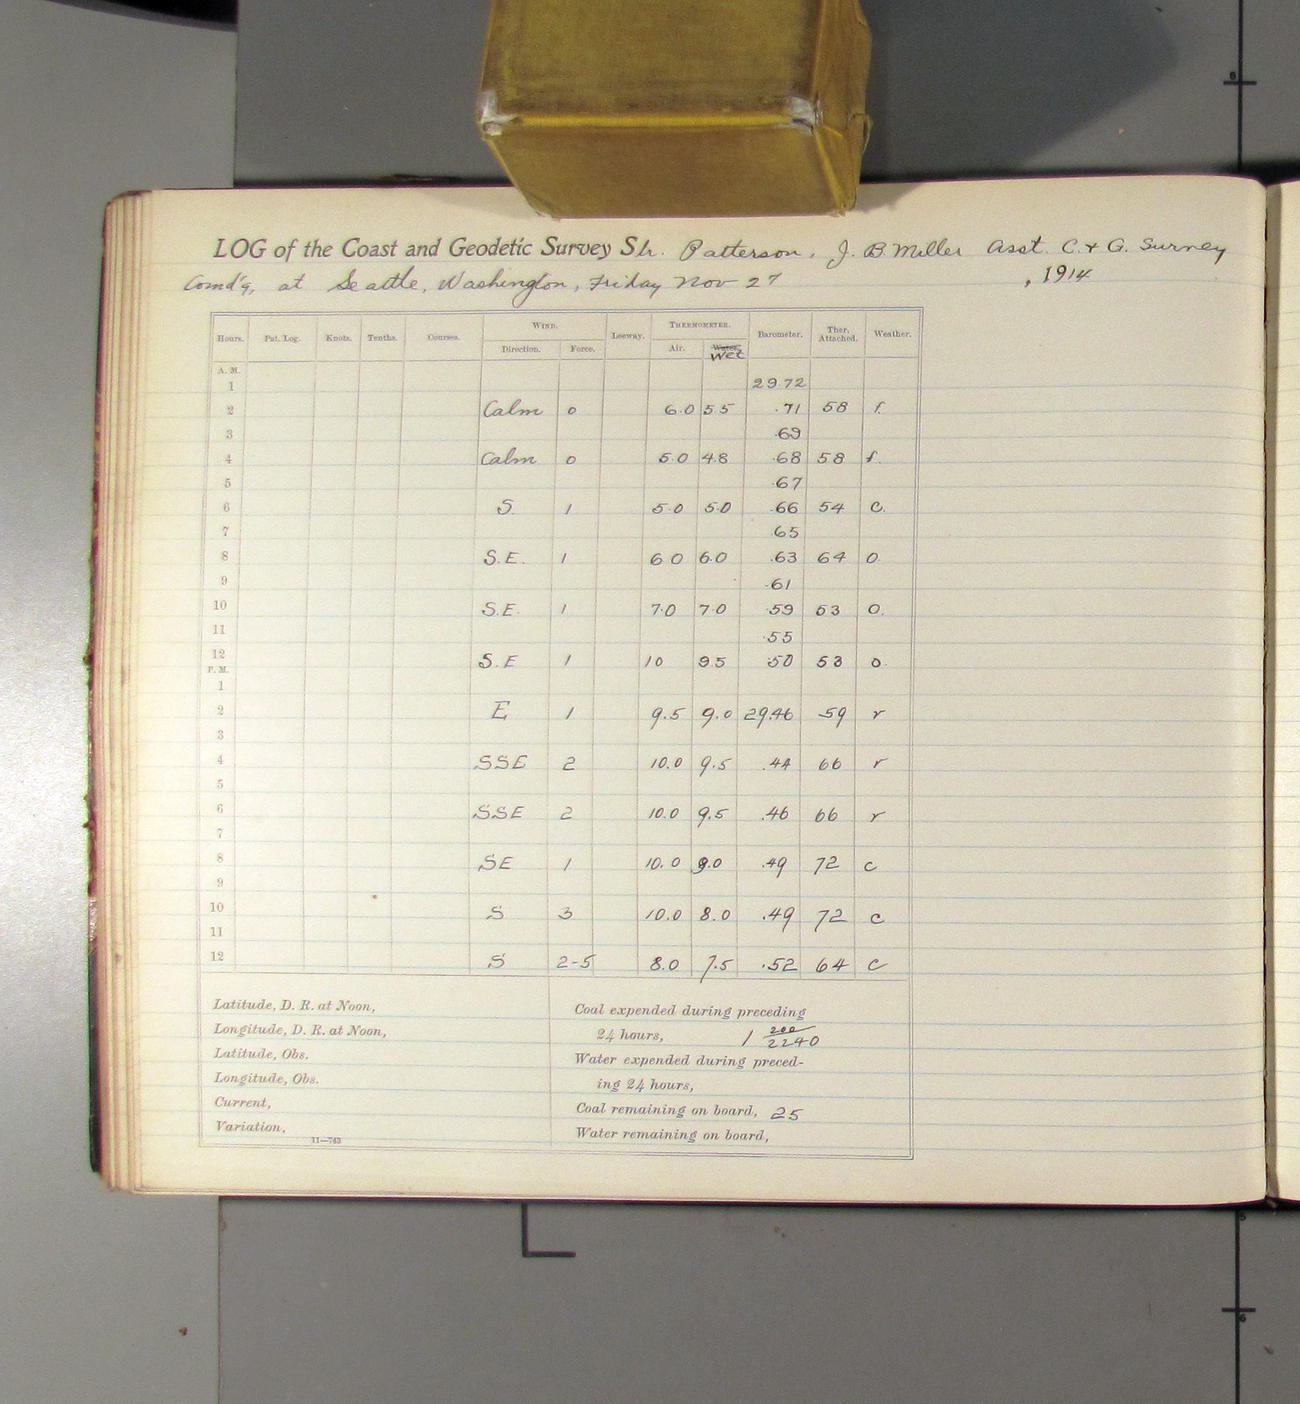 LOG of the Coast and Geodetic Survey Str. Patterson, J. B. Miller Asst. C. & G. Survey
Comd'g, at Seattle, Washington, Friday Nov 27 , 1914
Hours. Pat. Log. Knots. Tenths. Courses. WIND. Leeway. THERMOMETER. Barometer. Ther. Attached. Weather.
Direction. Force. Air. Water Wet
A. M.
1 29.72
2 Calm 0 6.0 5.5 .71 58 f.
3 .69
4 Calm 0 5.0 4.8 .68 58 f.
5 .67
6 S 1 5.0 5.0 .66 54 c.
7 .65
8 S.E. 1 6.0 6.0 .63 64 o
9 .61
10 S.E. 1 7.0 7.0 .59 53 o.
11 .55
12 S.E 1 10 9.5 .50 53 o.
P. M.
1
2 E 1 9.5 9.0 29.46 59 r
3
4 SSE 2 10.0 9.5 .44 66 r
5
6 SSE 2 10.0 9.5 .46 66 r
7
8 SE 1 10.0 9.0 .49 72 c
9
10 S 3 10.0 8.0 .49 72 c
11
12 S 2-5 8.0 7.5 .52 64 c
Latitude, D. R. at Noon,
Longitude, D. R. at Noon,
Latitude, Obs.
Longitude, Obs.
Current,
Variation,
11—743
Coal expended during preceding
24 hours, 1 200/2240
Water expended during preced-
ing 24 hours,
Coal remaining on board, 25
Water remaining on board,